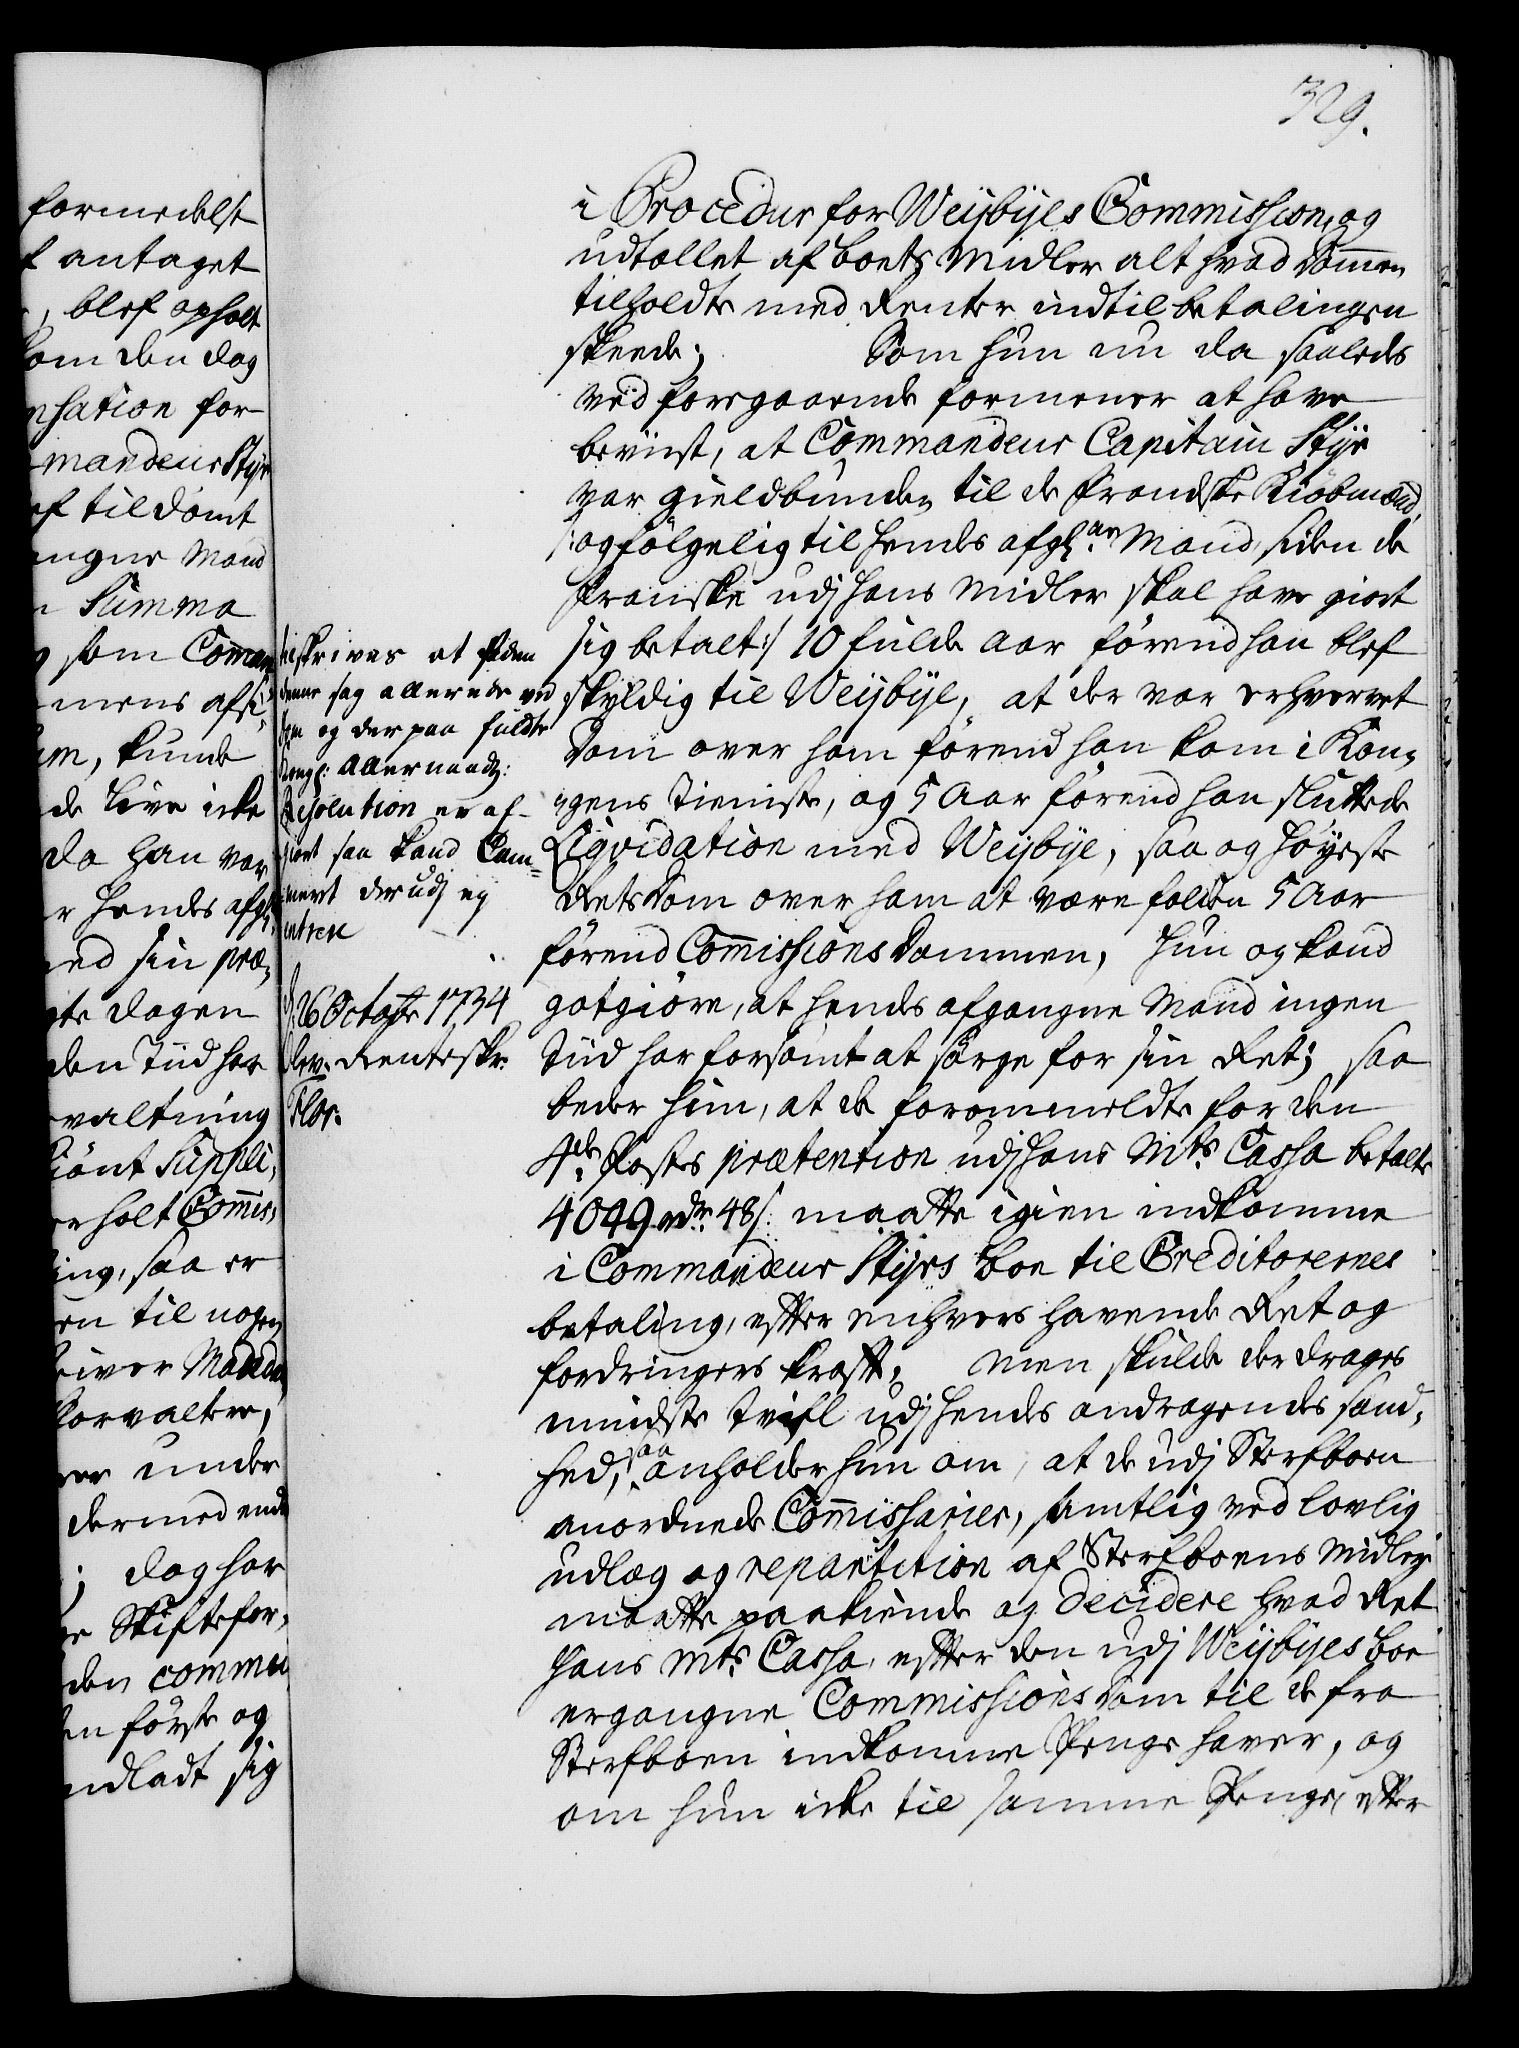 329.
formedelst
antaget
, blef opholt
om den dag
nsation for
mandeur Styr
ef tildömt
angne Mand
Summa
som Coman
mens afsi
um, kunde
de live icke
da han var
r hendes afgl:
ed sin præ,
te dagen
den Tiid har
valtning
iönt Suppli,
erholt Com̄is,
ing, saa er
en til nogen
river Mand
forvaltere,
rer under
dermed ende
; dog har
Skiftefor,
den commu
en förste og
ndladt sig
tilskrives at siden
denne sag allerede ved
dom og derpaa fuldte
Kongl: Allernaadg:
Resolution er af-
giort saa kand Cam=
meret derudj ej
entrere
d: 26 Octobr 1734
Rev. Renteskr:
Flor.
i Procedur for Weijbyes Commission, og
udtællet af boets Midler alt hvad Dom̄en
tilholdte med Renter indtil betalingen
skeede; Som hun nu da saaledes
ved foregaaende formener at have
beviist, at Commandeur Capitain Styr
var gieldbunden til de frandske Kiöbmænd,
/: og fölgelig til hendes afgl:ne Mand, siden de
franske udj hans Midler skal have giort
sig betalt :/ 10 fulde Aar förend han blef
skyldig til Weijbye, at der var erhvervet
Dom over ham förend han kom i Kon,
gens Tieniste, og 5 Aar förend han sluttede
Liqvidation med Weijbye, saa og Höyeste
Rets Dom over ham at være falden 5 Aar
förend Com̄issions Dommen, hun og kand
gotgiöre, at hendes afgangne Mand ingen
Tiid har forsömt at sörge for sin Ret; saa
beder hun, at de forommeldte for den
4de Postes prætention udj Hans Mts Cassa betalte
4049 rdr 48 s: maatte igien indkomme
i Commandeur Styrs boe til Creditorernes
betaling, efter enhvers havende Ret og
fordringers kraft, Men skulde der drages
mindste tvifl udj hendes andragendes sand,
hed, saa anholder hun om, at de udj Sterfboen
anordnede Com̄issarier, samtlig ved lovlig
udlæg og repartition af Sterfboens Midler
maatte paakiende og decidere hvad Ret
Hans Mts Cassa, efter den udj Weijbyes boe
ergangne Commissions Dom til de fra
Sterfboen indkomne Penge haver, og
om hun icke til samme Penge, efter